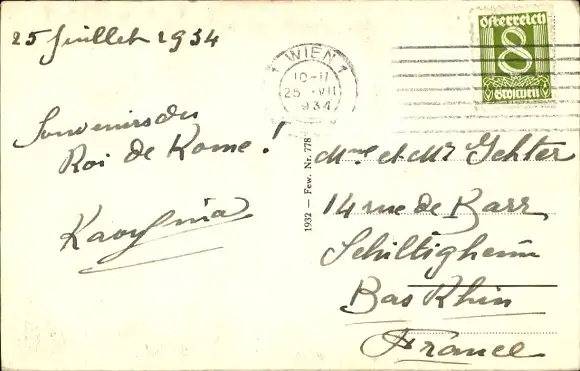 25 Juillet 1934
Souvenirs du
Roi de Rome !
1 WIEN 1
10-11
25 . VII
934
österreich
8
Groschen
1932 — Few. Nr. 778
Mme et Mr Gehter
14 rue de Barr
Schiltigheim
Bas Rhin
France